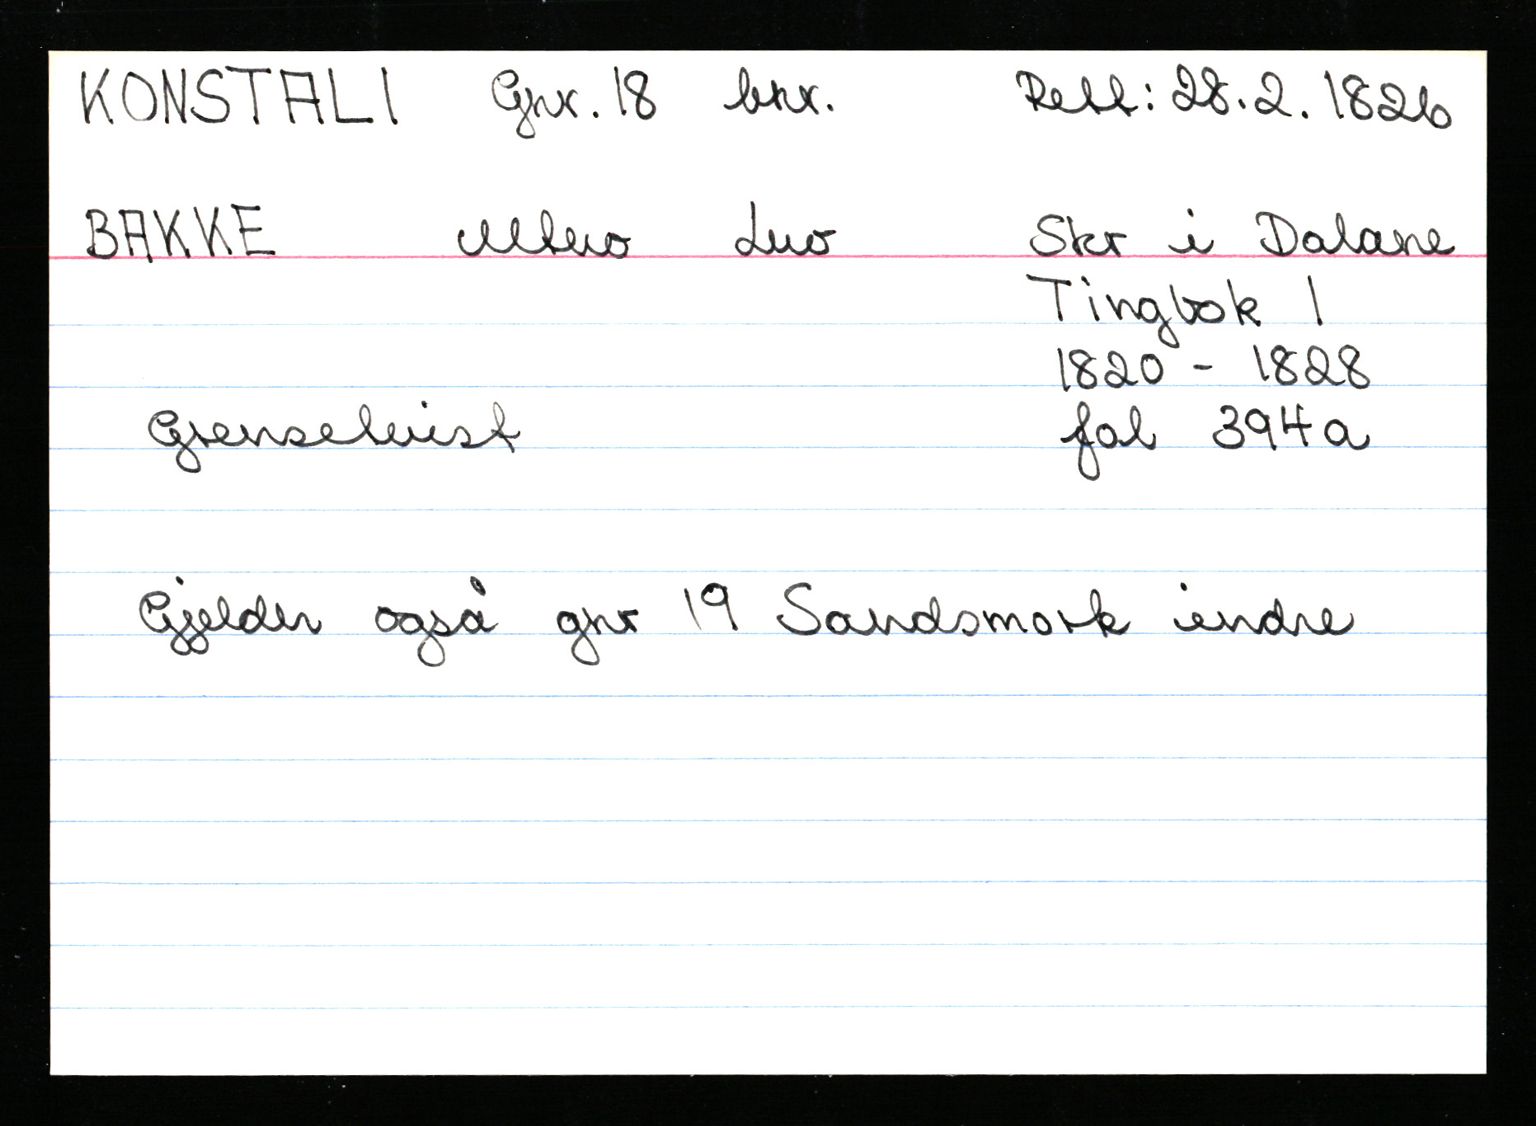 KONSTALI Gnr. 18 bnr. Rett: 28.2.1826
BAKKE Mtno Lno Skr i Dalane
Tingbok 1
1820 - 1828
Grensetvist fol 394a
Gjelder også gnr 19 Sandsmork indre